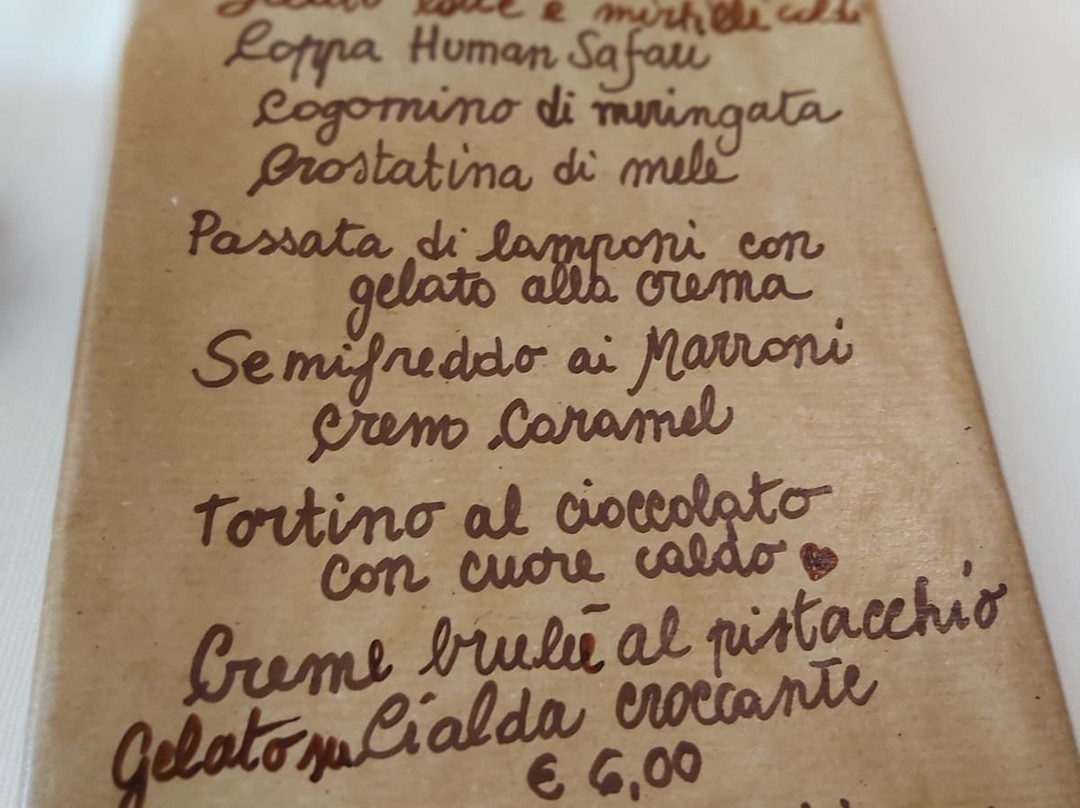 e mirtilli caldi
Coppa Human Safari
Cogomino di meringata
Crostatina di mele
Passata di lamponi con
gelato alla crema
Semifreddo ai Marroni
Crem Caramel
Tortino al cioccolato
con cuore caldo
Creme brulè al pistacchio
Gelato su Cialda croccante
€ 6,00